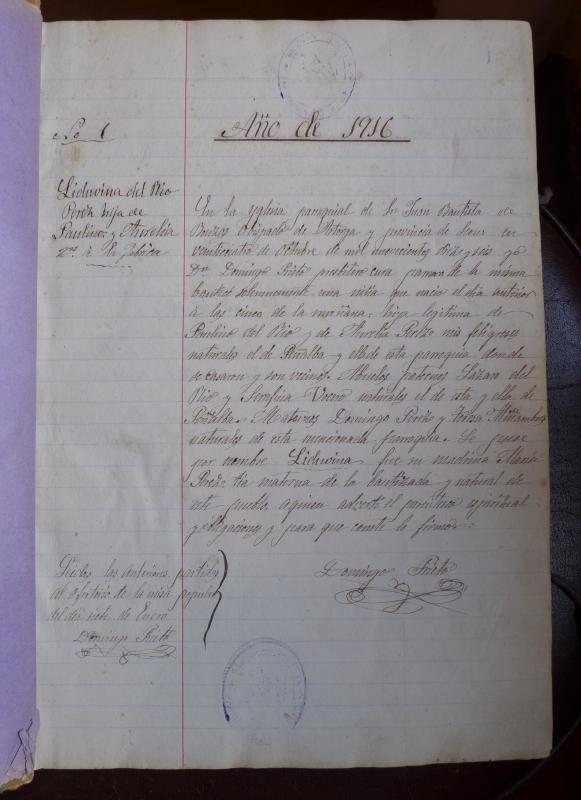 Año de 1916
No 1
Lidwina del Rio
Perez hija de
Paulino y Aurelia
En la yglesia parroquial de Sn Juan Bautista de
Obispado de Astorga y provincia de Leon en
veinticuatro de Octubre de mil novecientos diez y seis yo
Dn Domingo Prieto presbitero cura parroco de la misma
bauticé solemnemente una niña que nacio el dia anterior
á las cinco de la mañana: hija legitima de
Paulino del Rio y de Aurelia Perez mis feligreses
naturales el de Penalba y ella de esta parroquia donde
se casaron y son vecinos. Abuelos paternos Lazaro del
Rio y Serafina naturales el de esta y ella de
Penalba. Maternos Domingo Perez y Teresa Miñambres
naturales de esta mencionada parroquia. Se puso
por nombre Lidwina fue su madrina Maria
Perez tia materna de la bautizada y natural de
este pueblo, a quien adverti el parentesco espiritual
y obligaciones y para que conste lo firmo.
Domingo Prieto
Leidas las anteriores partidas
al ofertorio de la misa popular
del dia siete de Enero
Domingo Prieto